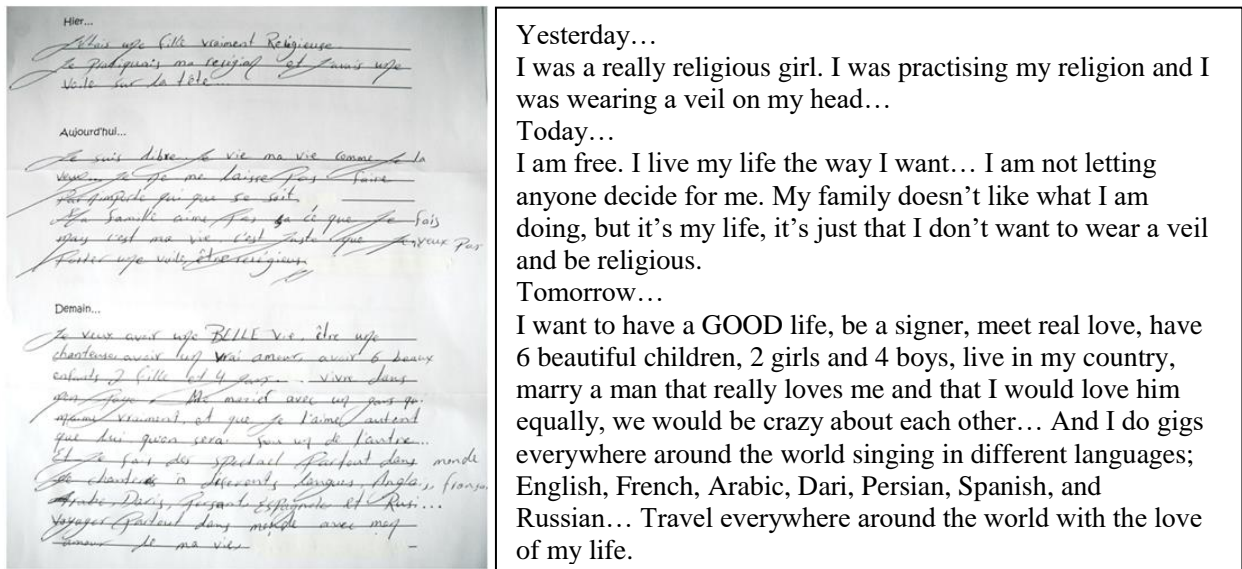 Hier...
J'étais une fille vraiment Religieuse.
Je pratiquais ma religion et j'avais une
voile sur la tête...
Aujourd'hui...
Je suis libre je vie ma vie comme je la
veux... Je ne me laisse Pas faire
Par n'importe qui que se soit.
Ma famille aime Pas sa ce que je fais
mais c'est ma vie c'est juste que j'en veux Pas
Porter une voile, être religieuse
Demain...
Je veux avoir une BELLE Vie, être une
chanteuse avoir un vrai amour, avoir 6 beaux
enfants 2 fille et 4 gars... vivre dans
mon Paye. Me marier avec un gars qui
m'aime vraiment et que je l'aime autant
que lui qu'on sera fou un de l'autre...
Et je fais des spectacl Partout dans monde
de différents langues, Anglais, français
Arabe, Daris, Persant, Espagnoles et Rusi...
voyager Partout dans monde avec mon
amour de ma vie.
Yesterday…
I was a really religious girl. I was practising my religion and I
was wearing a veil on my head…
Today…
I am free. I live my life the way I want… I am not letting
anyone decide for me. My family doesn’t like what I am
doing, but it’s my life, it’s just that I don’t want to wear a veil
and be religious.
Tomorrow…
I want to have a GOOD life, be a signer, meet real love, have
6 beautiful children, 2 girls and 4 boys, live in my country,
marry a man that really loves me and that I would love him
equally, we would be crazy about each other… And I do gigs
everywhere around the world singing in different languages;
English, French, Arabic, Dari, Persian, Spanish, and
Russian… Travel everywhere around the world with the love
of my life.